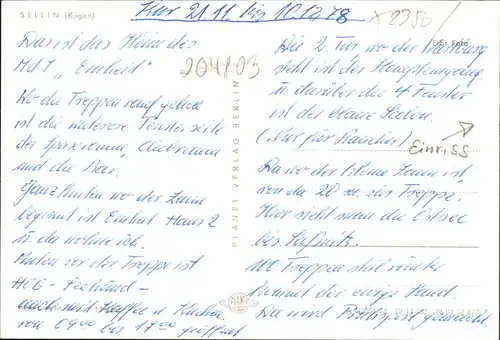 SELLIN (Rügen)
Kur 21.11. bis 10.12.78
x 2950/
204103
Das ist das Heim des
MdI „Einheit"
Wo die Treppen rauf gehen
ist die untere Fensterseite
der Speiseraum,
und die Bar.
Ganz hinten wo der Zaun
beginnt ist Einheit Haus 2
u. da wohne ich.
Hinten vor der Treppe ist
HOG
auch mit Kaffee u. Kuchen
von 09 00 bis 17 00 geöffnet
PLANET VERLAG BERLIN
PLANET
Die 2. Tür wo der
steht ist der Haupteingang
u. darüber die 4 Fenster
ist der blaue Salon.
(Nur für Raucher)
Einriss
Da wo der kleine Zaun ist,
von da 20 m zur Treppe.
Hier sieht man die Ostsee
bis Saßnitz.
100 Treppen steil runter
kommt der ewige Sand.
Da wird gebadet.